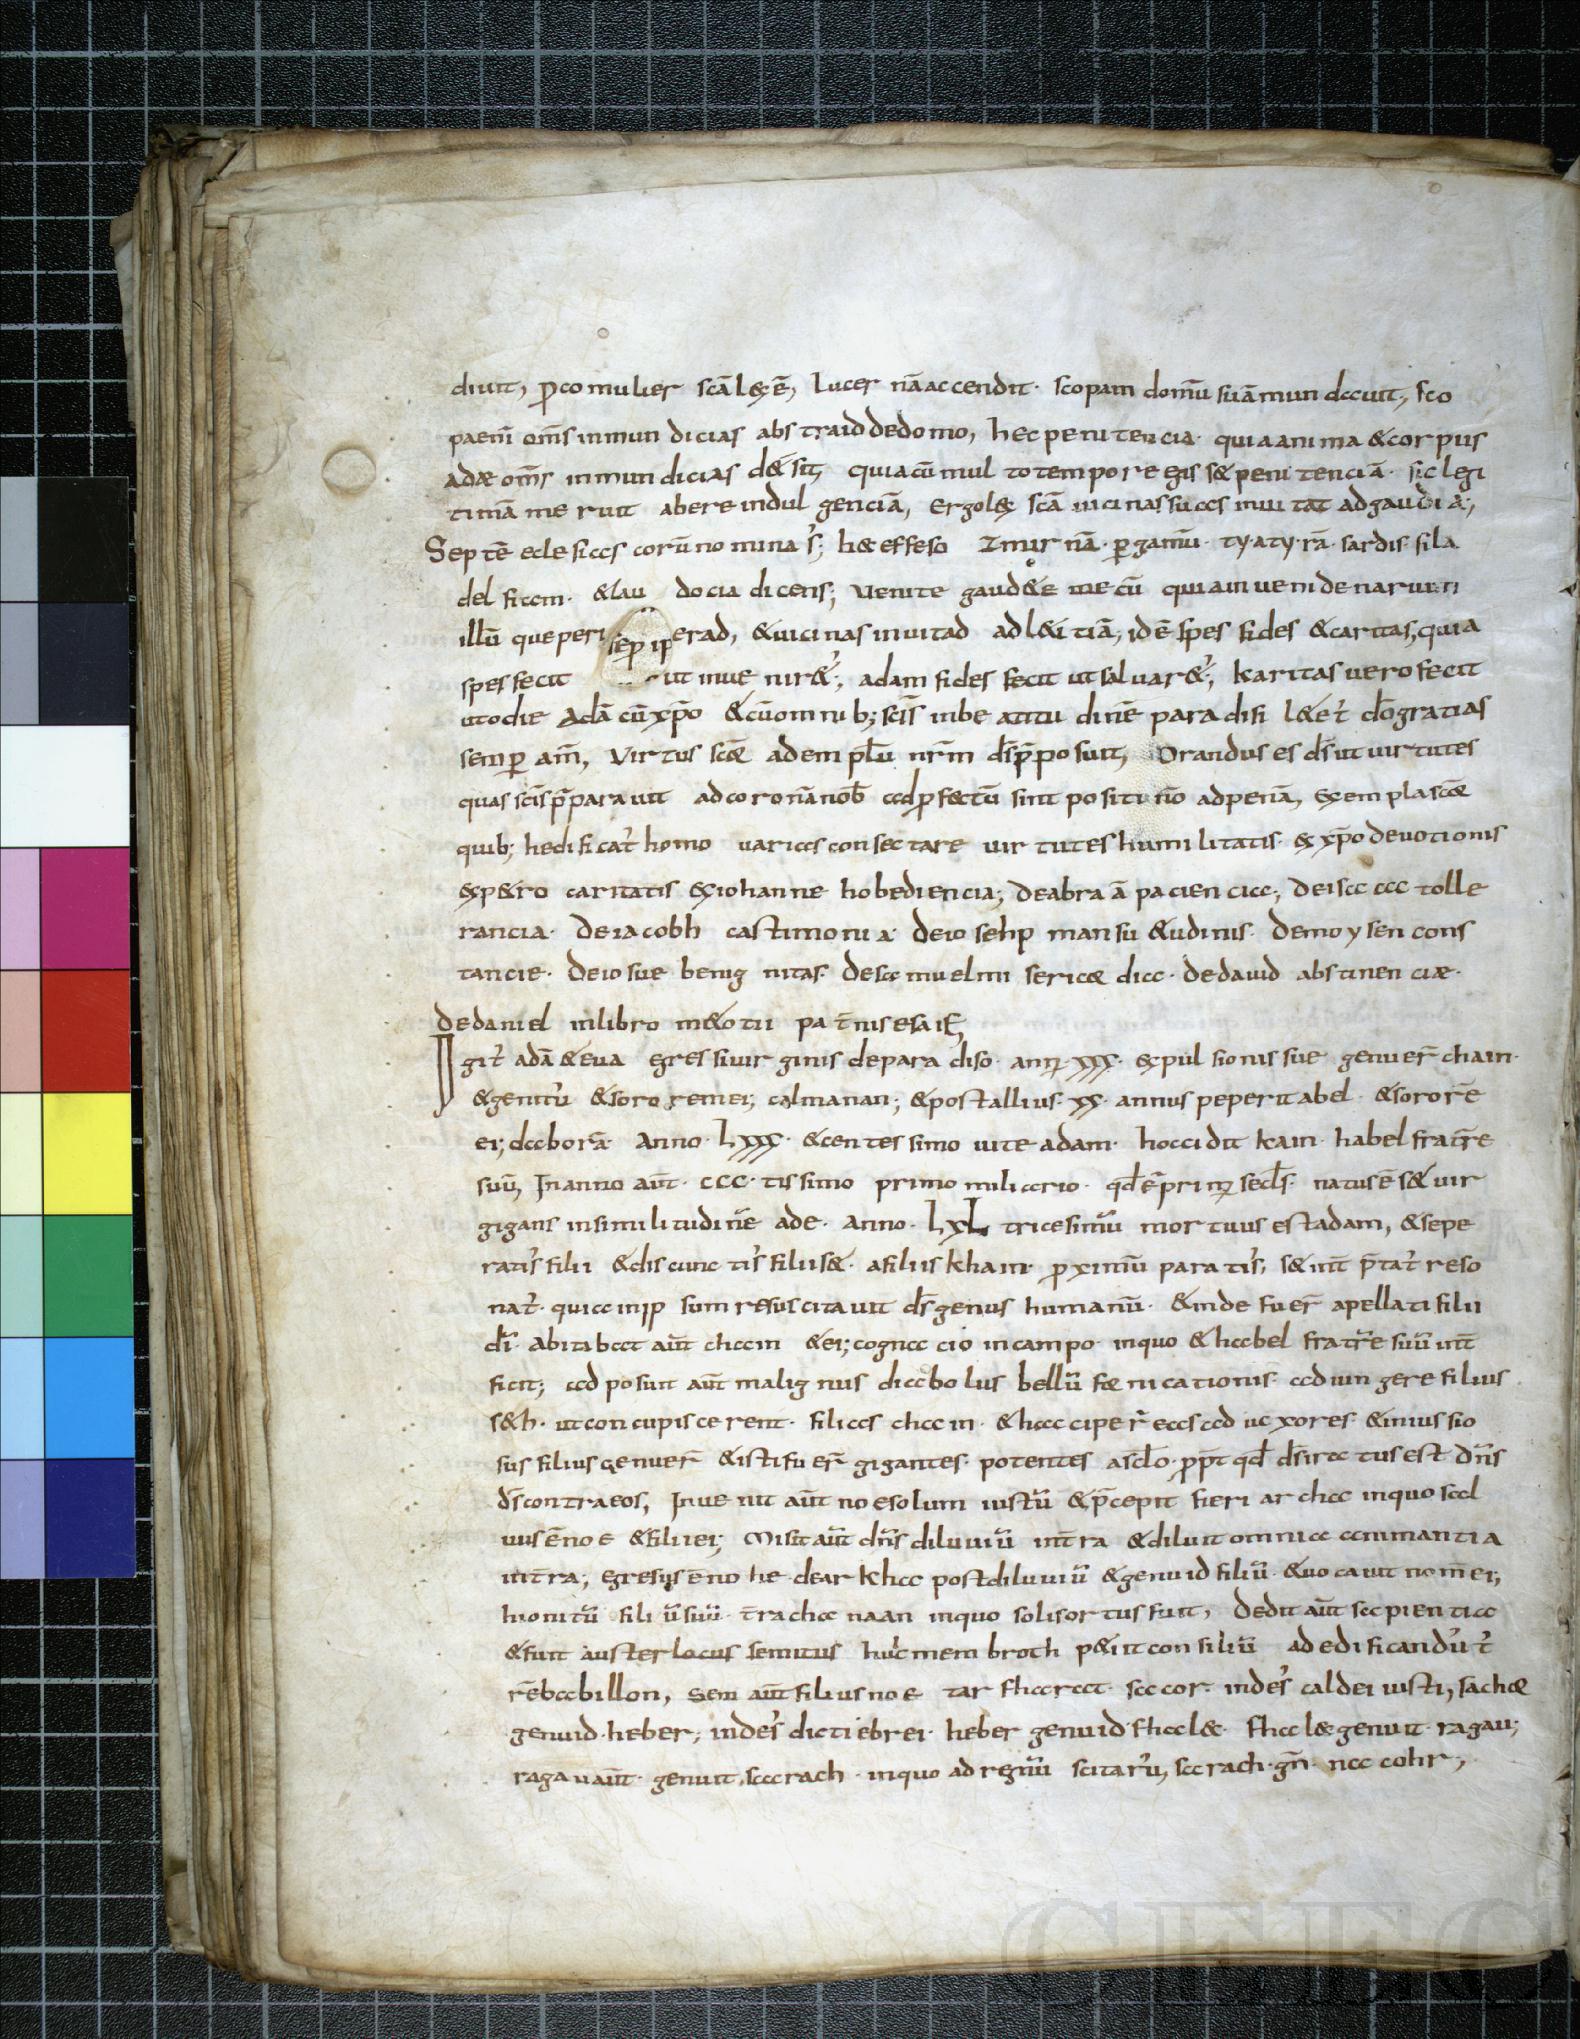 diuit, p̄co mulier scā lex ē, lucer nā accendit· scopam domū suā mun dauit, sco
paem̄ om̄s inmun dicias abs traid de domo, hec penitencia· quia anima & corpus
adæ om̄s inmun dicias d& sit, quia cū mul to tempore egis s& peni tenciā· sic legi
timā me ruit abere indul genciā, ergo lex scā uicinas suas inui tat ad gaudia;
Septē eclesias corū no mina s̄; h& effeso Zmir nā· pgamū· ty·aty·rā· sardis· fila
del fiam· & lau docia dicens; uenite gaud&e me cū quia in ueni denarium
illū que peri erad, & uicinas inuitad ad l&itiā, id ē spes fides & caritas, quia
spes fecit ut inue nir&; adam fides fecit ut saluar&; karitas uero fecit
ut odie adā cū xp̄o & cū omnib; scīs in beatitu dinē paradisi l&et̄ dō gratias
semp am̄, Virtus scæ ad em plū nr̄m d̄s p̄posuit, Orandus es d̄s ut uirtutes
quas scīs p̄parauit ad coronā nob̄ ad pfectū sint positi nō ad penā, exempla scæ
quib; hedificat̄ homo uarias consectare uir tutes humilitatis· ex xp̄o deuotionis
ex p&ro caritatis ex iohanne hobediencia; de abraā paciencia; de isaac tolle
rancia· de iacobh castimonia· de iosehp mansu &udinis· de moysen cons
tancie· de iosue benig nitas· de samuel mi sericæ dia· de dauid abs tinen ciæ·
de daniel in libro m&otii pa t̄nis esaie
Igit̄ adā & eua egressi uir ginis de para diso· anꝝ· xxx· expul sionis sue genuer̄ chain·
& genitū & sororem ei; calmanan; & post allius· xx· annus peperit abel· & sororē
ei; delborā· Anno· Lxxx· & centes simo uite adam· hoccidit kain· habel fratr̄e
suū, In anno aūt· ccc· tis simo primo miliario· qd̄ ē primꝝ secl̄s· natus ē s& uir
gigans in similitudinē ade· anno· LxL tricesimū mortuus est adam, & sepe
ratis̄ filii & dis cunc tis̄ filii s&· a filiis kham· pximū paratis̄, s& int̄ p̄tat̄ reso
nat̄· quia in ip sum resuscitauit d̄s genus humanū· & inde fuer̄ apellati filii
dī· abitabat aūt chain & ei; cogna cio in campo· in quo & habel fratr̄e suū int̄
ficit; adposuit aūt malignus diabolus bellū fornicationis· ad iun gere filius
s&h· ut concupiscerent· filias chain· & hacciper̄ eas ad uxores· & in ius sio
sus filius genuer̄ & isti fuer̄ gigantes· potentes a scl̄o· pp̄t qd̄ d̄s iratus est dn̄s
d̄s contra eos, Inuenit aūt noe solum iustū & p̄cepit fieri archa in quo sal
uus ē noe & filii ei; Misit aūt dn̄s diluuiū in t̄ra & diluit omnia animantia
in t̄ra; egressus ē no he de arkha post diluuiū & genuid filiū· & uocauit nomē ei;
hionitū filiū suū· t̄ra chanaan in quo solis ortus fuit, dedit aūt sapientia
& fuit auster locus semitus huic membroth p&iit consiliū ad edificandū t̄
rē babillon, Sem aūt filius noe tar fharat· sacor· inde s̄ caldei iusti, sachæ
genuid· heber; inde s̄ dicti ebrei· heber genuid· fhal&· fhal& genuit· ragau;
ragau aūt· genuit sarach· in quo ad regnū scitarū, sarach· gn̄· nacohr,